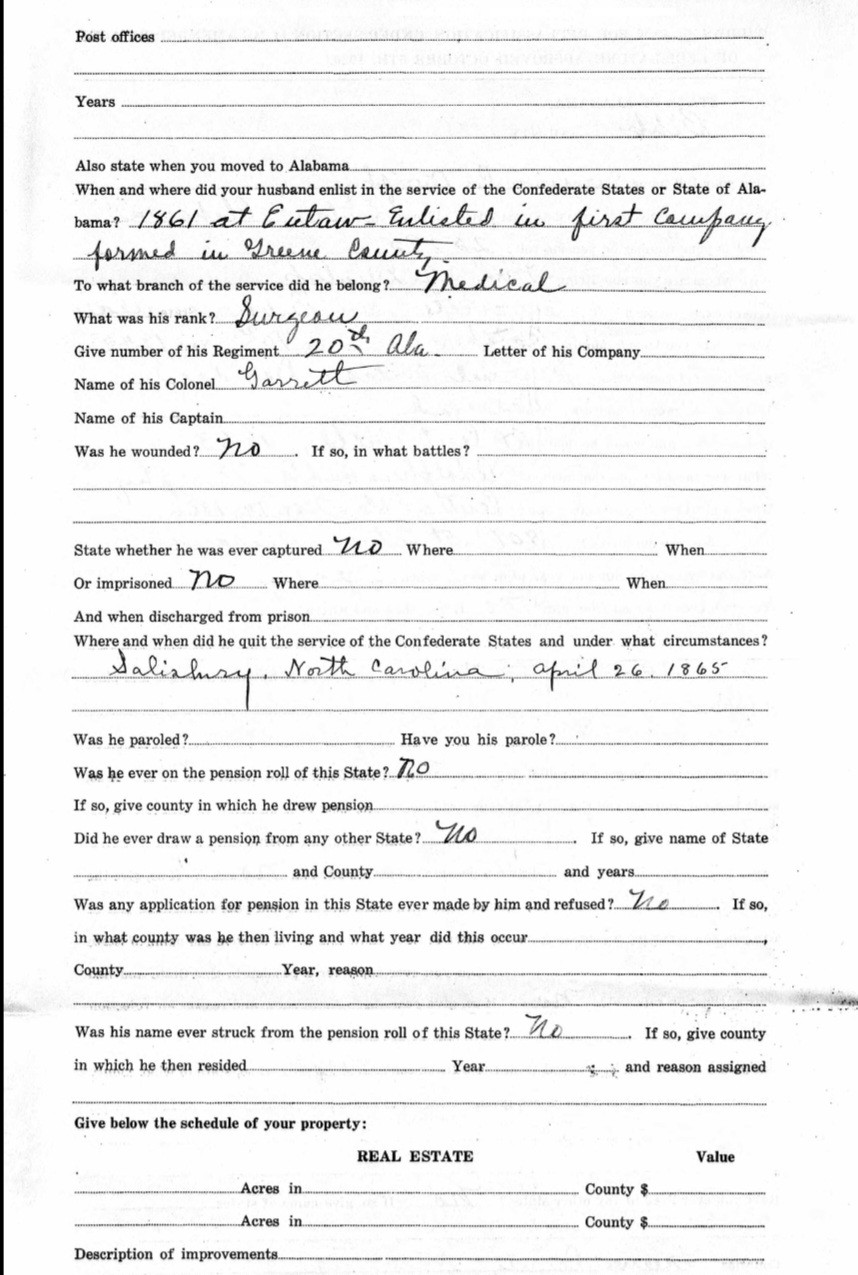 Post offices
Years
Also state when you moved to Alabama
When and where did your husband enlist in the service of the Confederate States or State of Ala-
bama? 1861 at Eutaw - Enlisted in first Company
formed in Greene County.
To what branch of the service did he belong? Medical
What was his rank? Surgeon
Give number of his Regiment 20th Ala. Letter of his Company
Name of his Colonel Garrett
Name of his Captain
Was he wounded? No. If so, in what battles?
State whether he was ever captured No Where When
Or imprisoned No Where When
And when discharged from prison
Where and when did he quit the service of the Confederate States and under what circumstances?
Salisbury, North Carolina, April 26. 1865
Was he paroled? Have you his parole?
Was he ever on the pension roll of this State? No
If so, give county in which he drew pension
Did he ever draw a pension from any other State? No. If so, give name of State
and County and years
Was any application for pension in this State ever made by him and refused? No. If so,
in what county was he then living and what year did this occur,
County Year, reason
Was his name ever struck from the pension roll of this State? No. If so, give county
in which he then resided Year and reason assigned
Give below the schedule of your property:
REAL ESTATE Value
Acres in County $
Acres in County $
Description of improvements